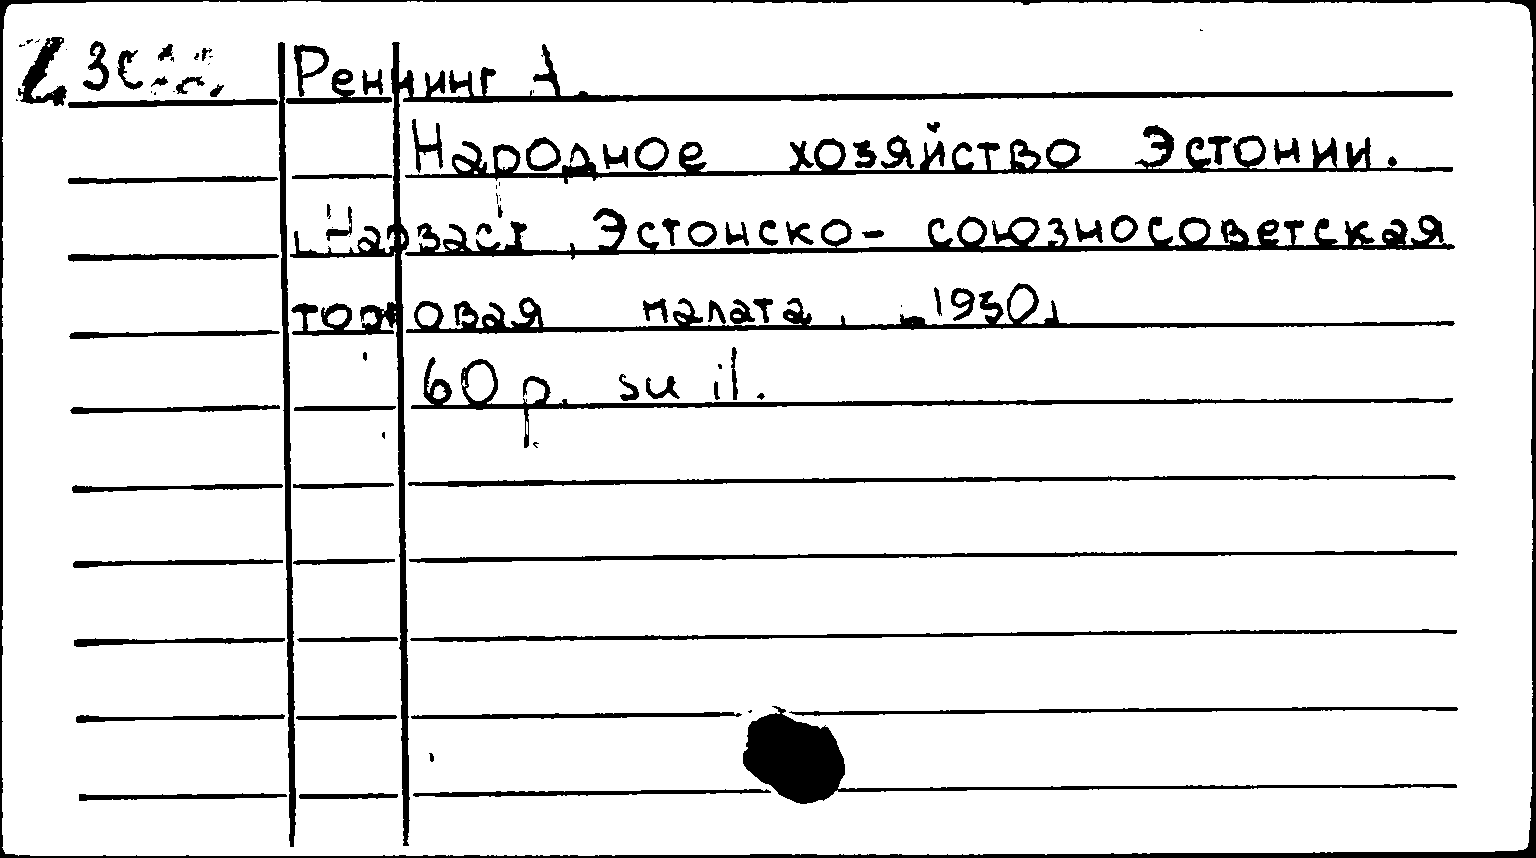 Реннинг А.
Народное хозяйство Эстонии.
Нарваст, Эстонско- союзносоветская
торговая палата, 1930
60 p. su il.